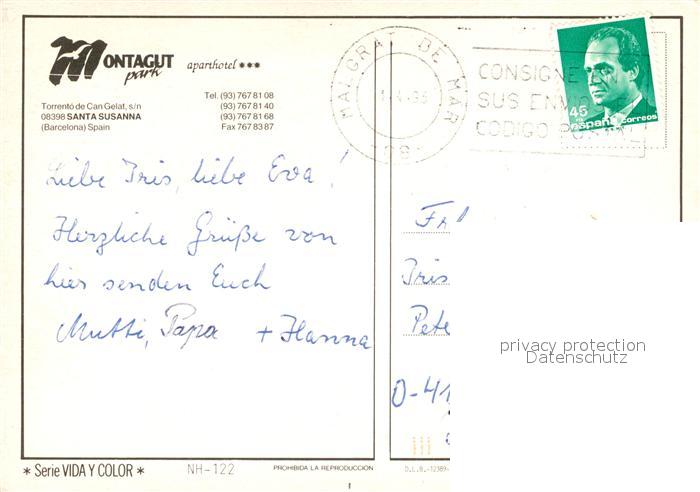 MONTAGUT
park
aparthotel ***
Torrentó de Can Gelat, s/n
08398 SANTA SUSANNA
(Barcelona) Spain
Tel. (93) 767 81 08
(93) 767 81 40
(93) 767 81 68
Fax 767 83 87
MALGRAT DE MAR
CONSIGNE
SUS ENVIOS
CODIGO POSTAL
45
España correos
Liebe Iris, liebe Eva!
Herzliche Grüße von
hier senden Euch
Mutti, Papa + Hanna
Iris
Pete
O-41
privacy protection
Datenschutz
* Serie VIDA Y COLOR *
NH-122
PROHIBIDA LA REPRODUCCION
D.L.B.-12389-